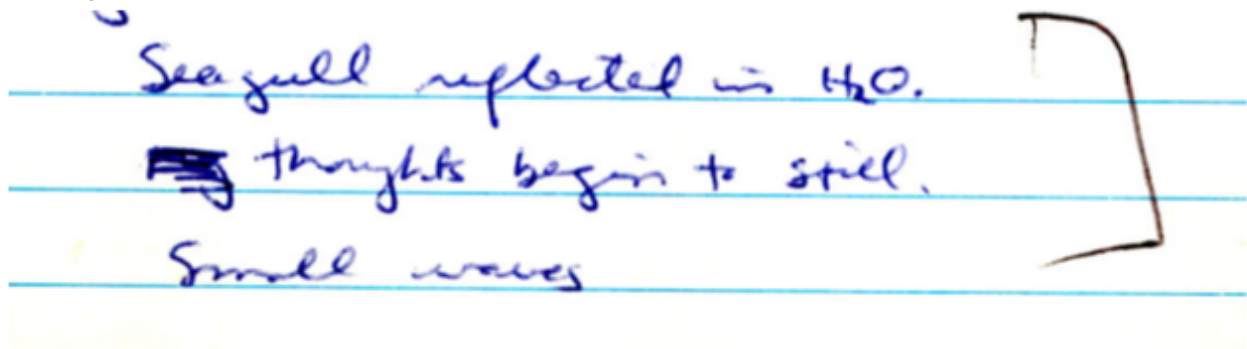 Seagull reflected in H₂O.
thoughts begin to still.
Small waves